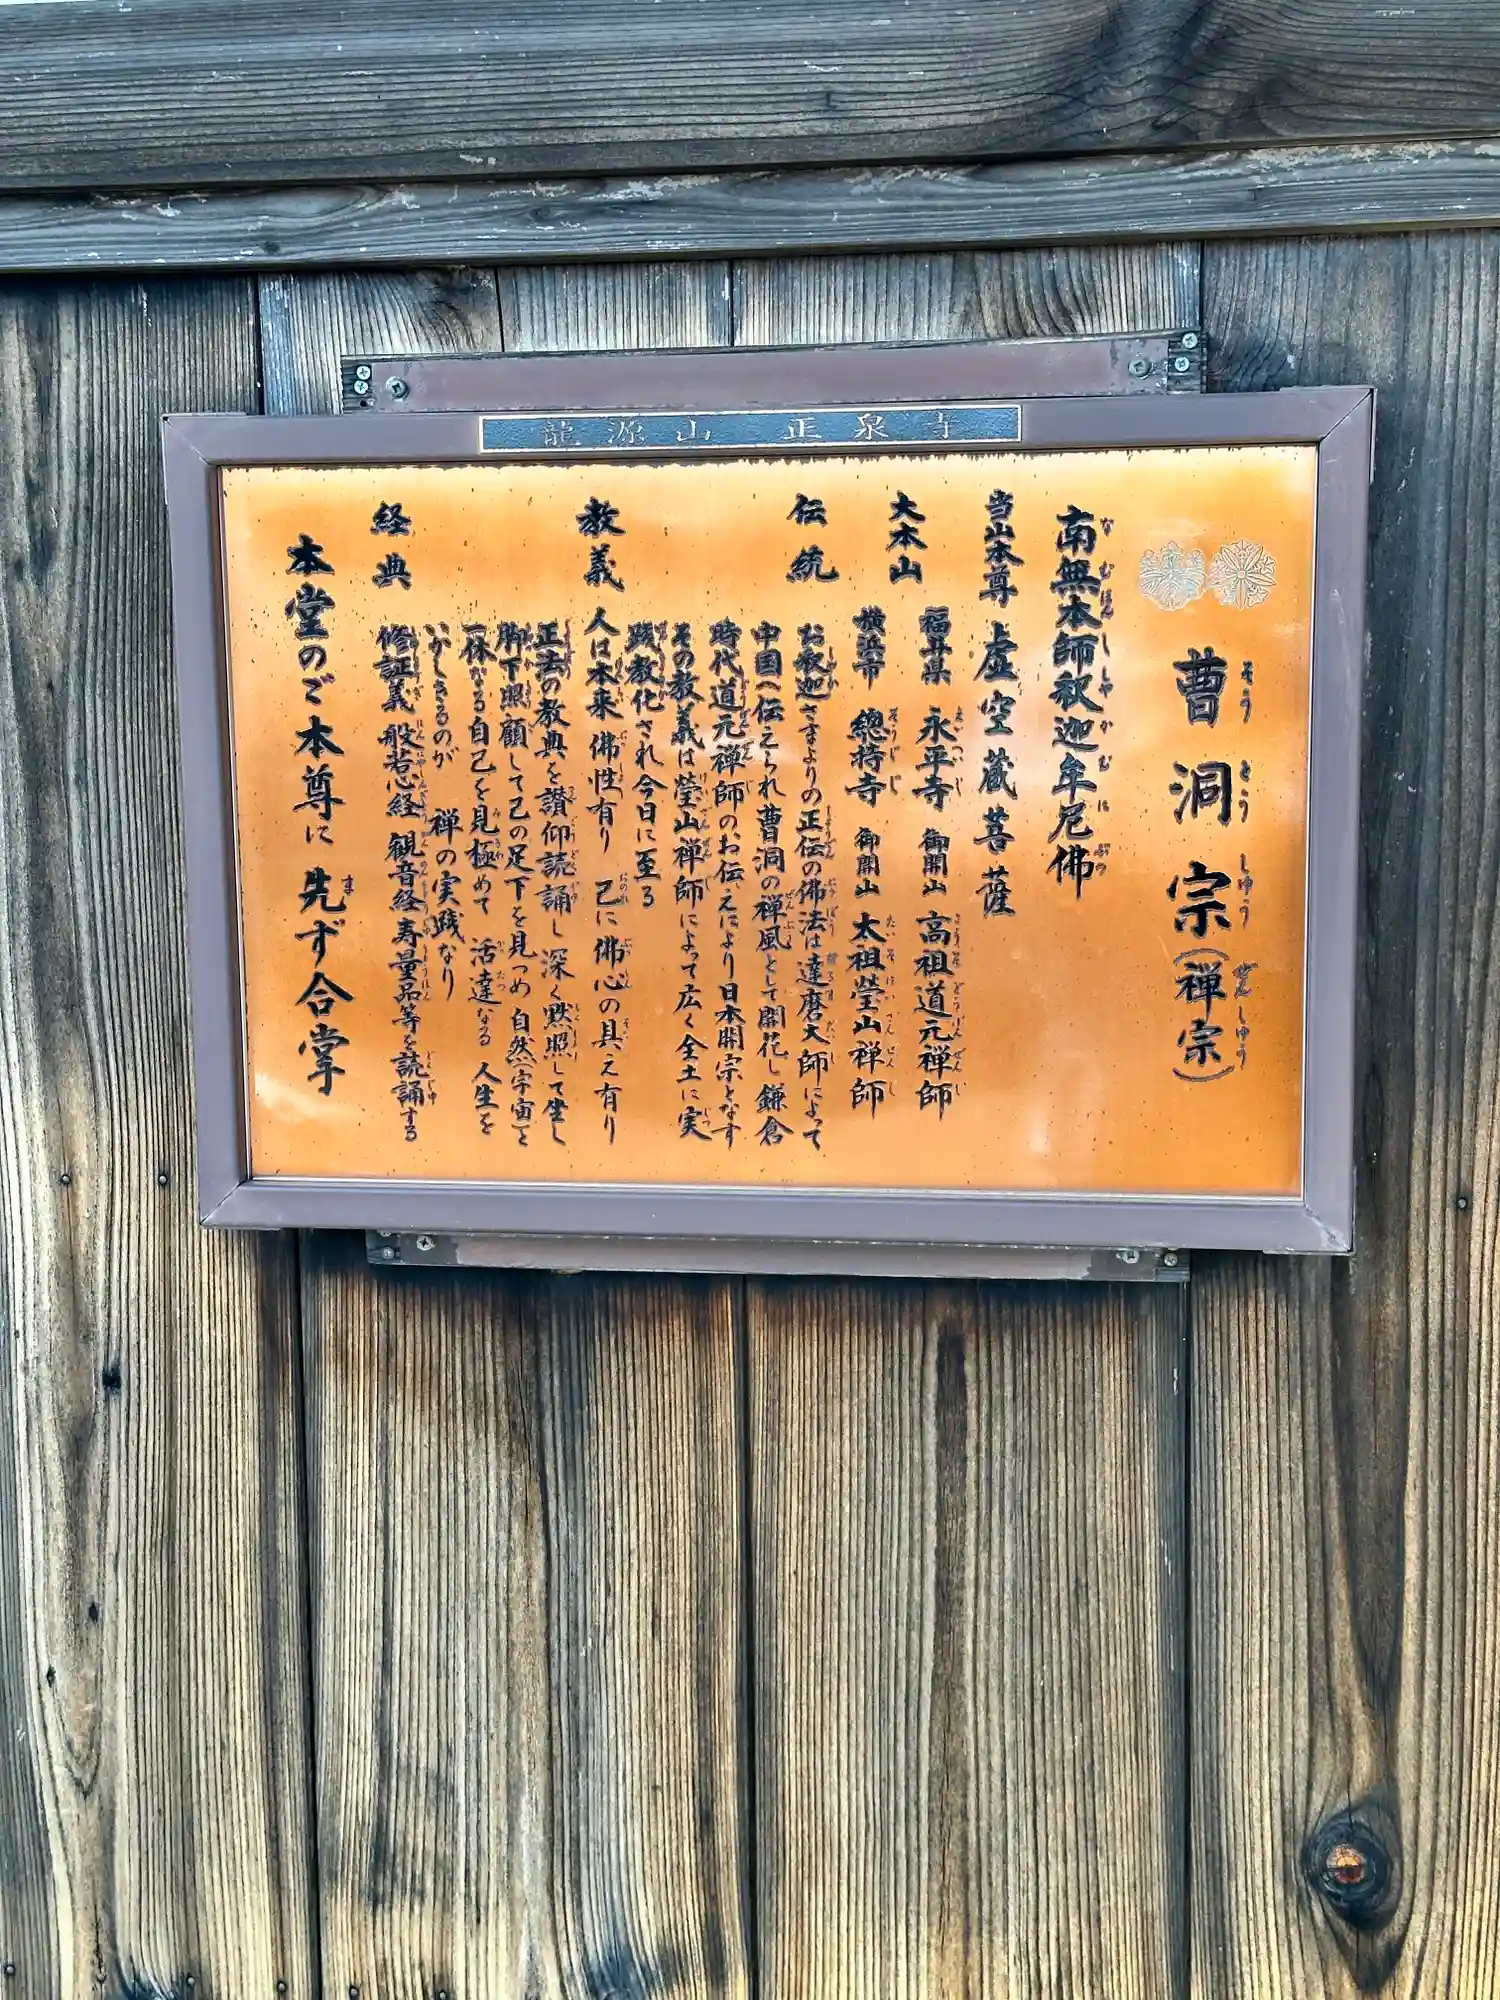 龍源山 正泉寺
曹洞宗(禅宗)
南無本師釈迦牟尼佛
当山本尊 虚空蔵菩薩
大本山 福井県 永平寺 御開山 高祖道元禅師
横浜市 總持寺 御開山 太祖瑩山禅師
伝統 お釈迦さまよりの正伝の佛法は達磨大師によって
中国へ伝えられ曹洞の禅風として開花し鎌倉
時代道元禅師のお伝えにより日本開宗となす
その教義は瑩山禅師によって広く全土に実
践教化され今日に至る
教義 人は本来佛性有り 己に佛心の具え有り
正法の教典を讃仰読誦し深く黙照して坐し
脚下照顧して己の足下を見つめ自然(宇宙)と
一体なる自己を見極めて 活達なる人生を
いかしきるのが 禅の実践なり
経典 修証義 般若心経 観音経 寿量品等を読誦する
本堂のご本尊に 先ず合掌